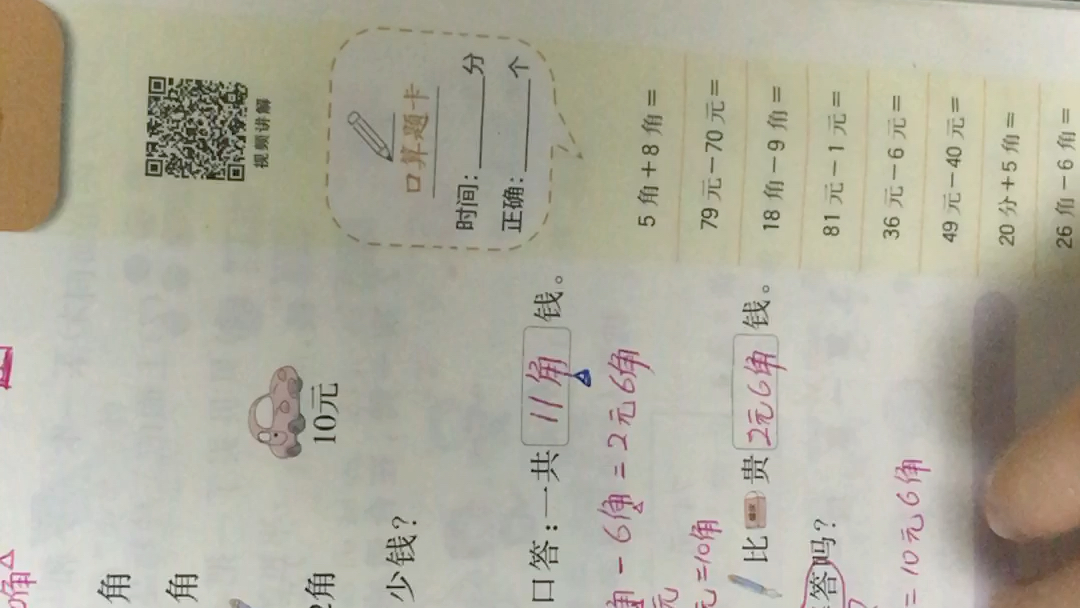 视频讲解
口算题卡
时间：____分
正确：____个
5 角＋8 角＝
79 元－70 元＝
18 角－9 角＝
81 元－1 元＝
36 元－6 元＝
49 元－40 元＝
20 分＋5 角＝
26 角－6 角＝
角
角
10元
2角
少钱？
口答：一共 11角 钱。
角－6角＝2元6角
元＝10角
比 贵 2元6角 钱。
答吗？
＝10元6角